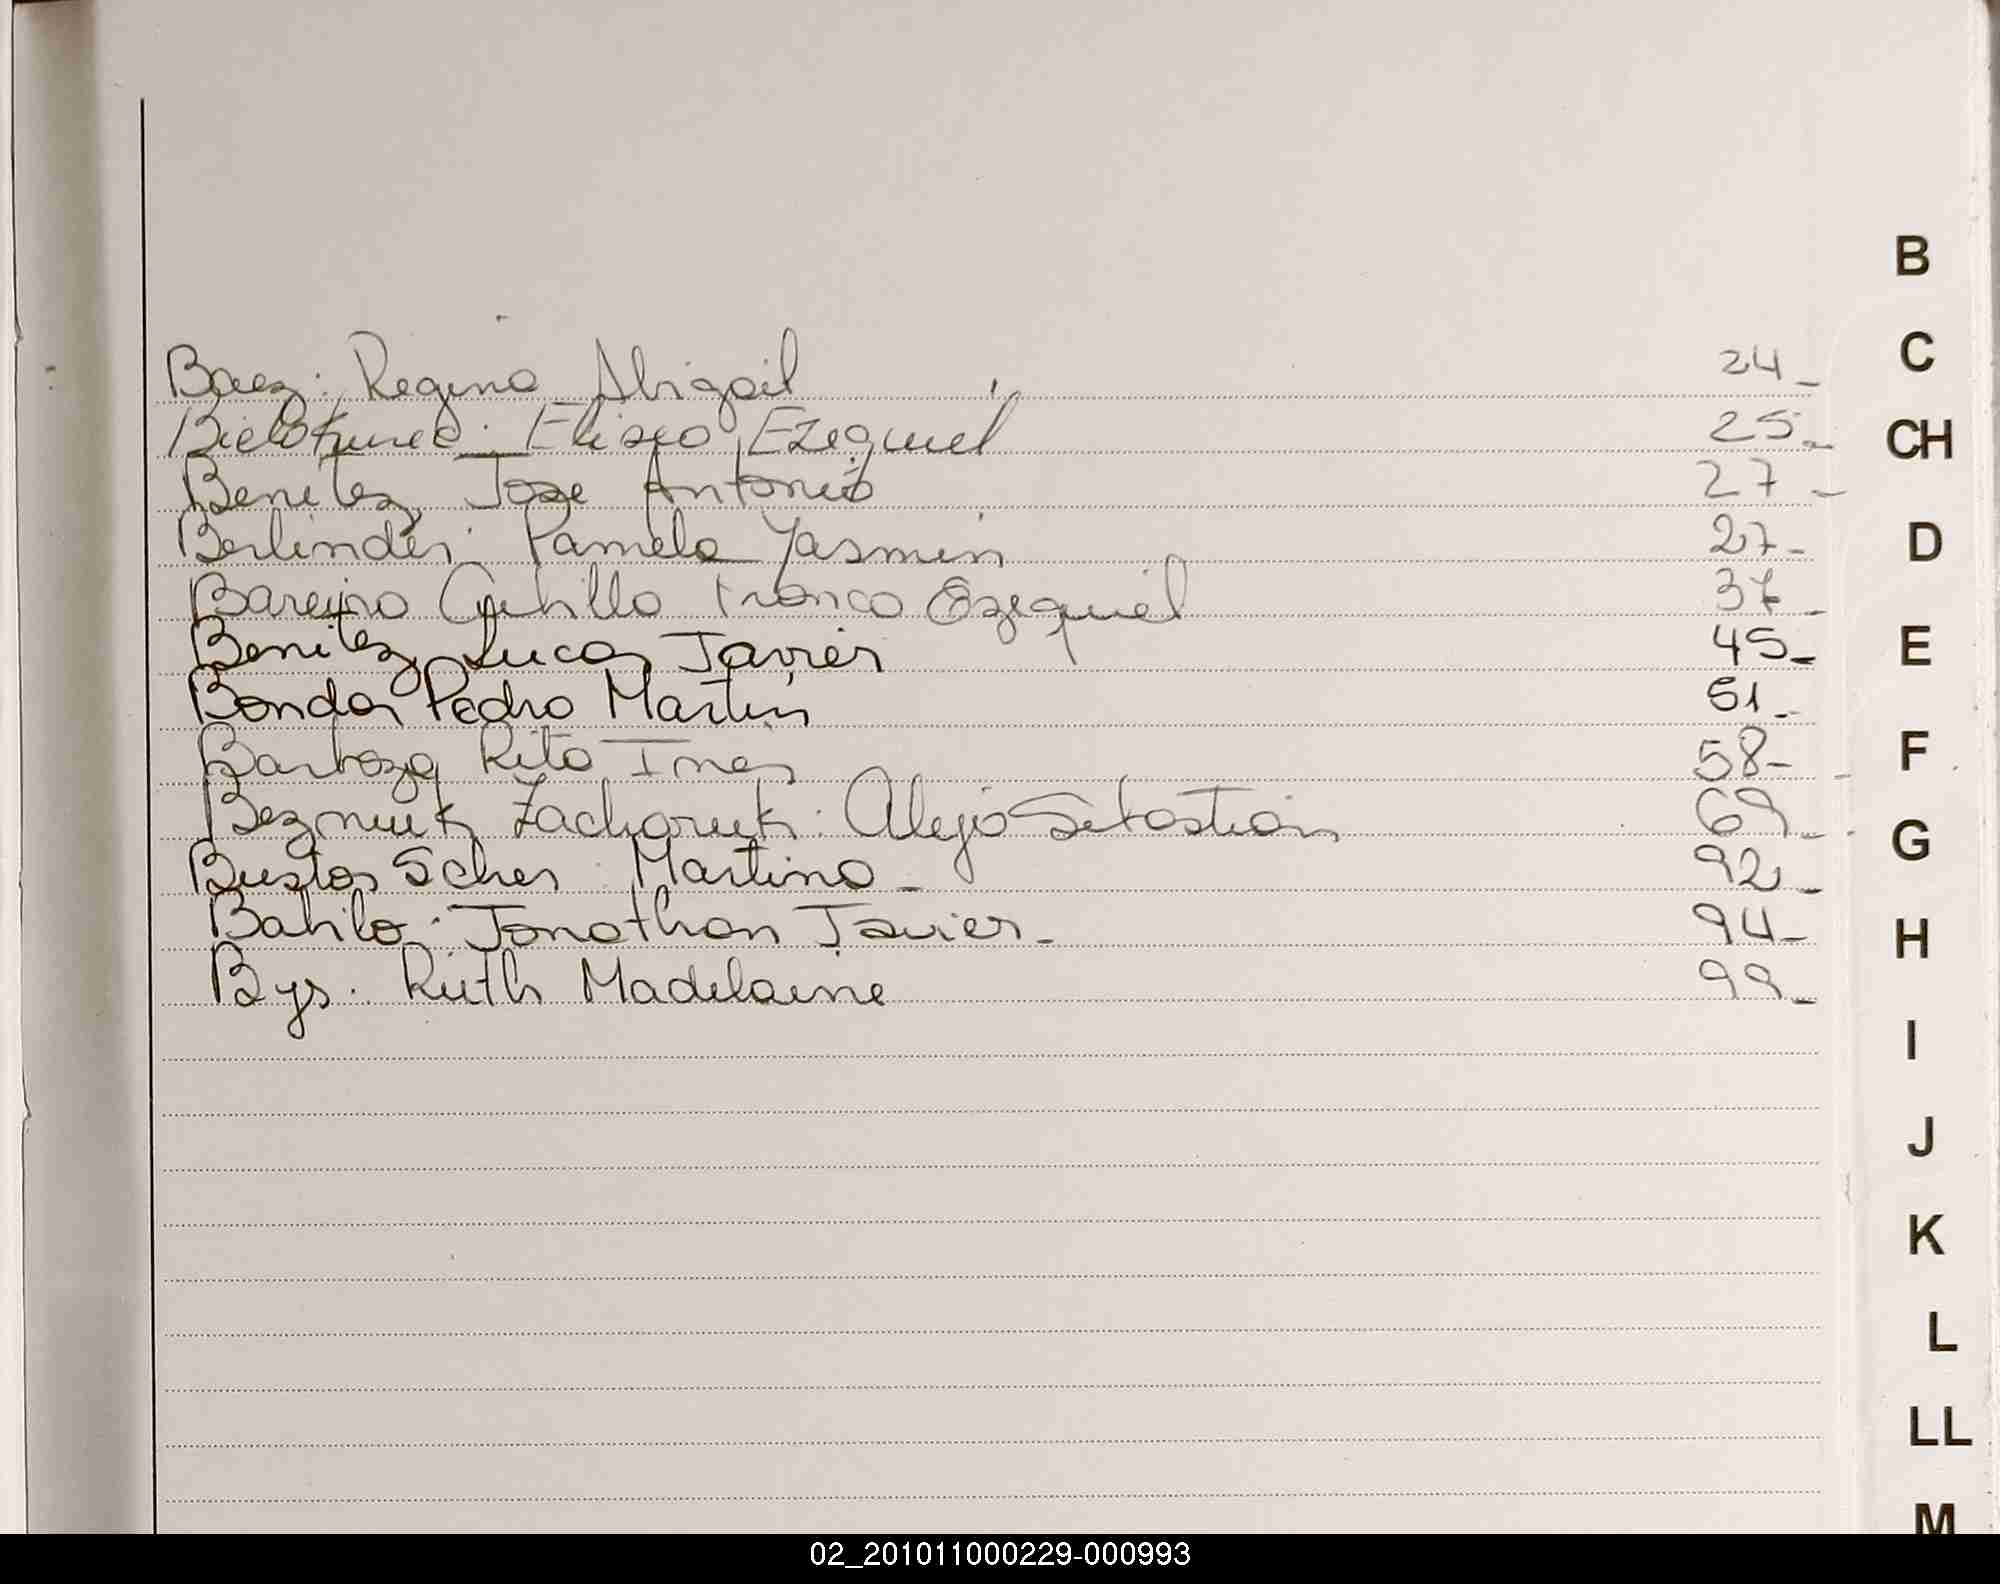 Baez: Regina Abigail 24_
Bielokurec: Eliseo Ezequiel 25_
Benitez Jose Antonio 27_
Berlinder: Pamela Yasmin 27_
Bareiro Cubilla Franco Ezequiel 37_
Benitez Lucas Javier 45_
Bondar Pedro Martin 51_
Barboza Rita Ines 58_
Bezmiuk Zachariuk: Alejo Sebastian 69_
Bustos Scher: Martina_ 92_
Batilo: Jonathan Javier_ 94_
Bys: Ruth Madelaine 99_
B
C
CH
D
E
F
G
H
I
J
K
L
LL
M
02_201011000229-000993